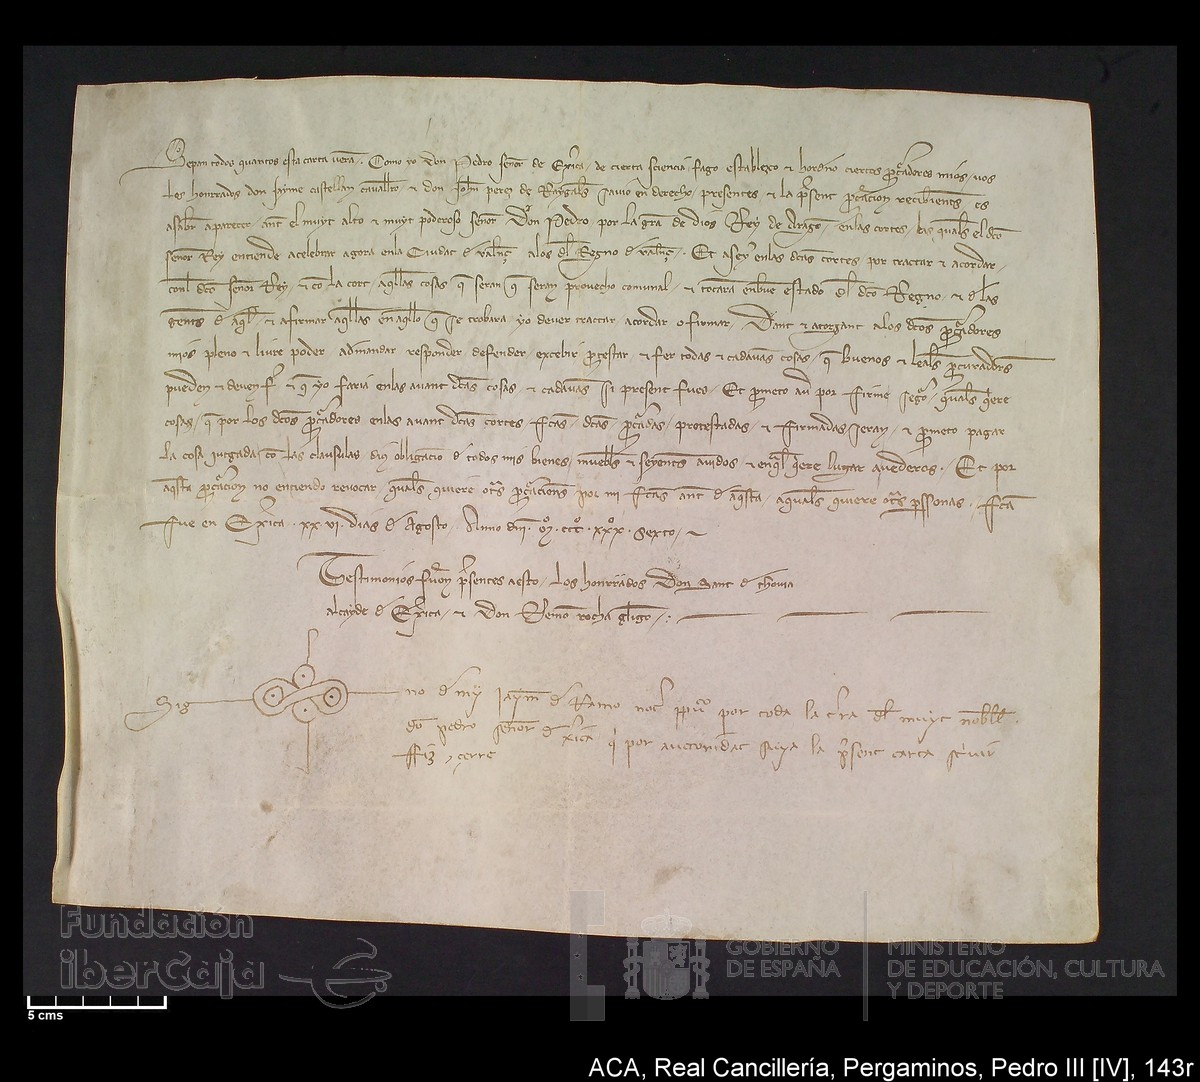 Sepan todos quantos esta carta veran. Como yo don Pedro señor de Exerica, de cierta sciencia fago establezco et hordeno ciertos procuradores mios, vos
los honrrados don Jayme castellan cavallero, et don Johan perez de savio en derecho, presentes et la present procuracion recibientes es
asaber aparecer ant el muyt alto et muyt poderoso señor Don Pedro por la gracia de dios Rey de Aragon, en las cortes, las quales el dito
señor Rey entiende a celebrar agora en la Ciudat de valencia a los del Regno de valencia. Et aseyer en las ditas cortes por tractar et acordar,
con el dito señor Rey, et con la cort, aquellas cosas que seran provecho comunal, et tocaran en buen estado del dito Regno, et de las
gentes de aquel, et afirmar aquellas en aquello que se trobara yo dever tractar acordar o firmar, Dant et atorgant a los ditos procuradores
mios pleno et livre poder a demandar responder defender, excebir protestar, et fer todas et cadaunas cosas, que buenos et leales procuradores
pueden et deven fer, et que yo faria en las avant ditas cosas, et cadaunas si present fues, Et prometo aver por firme quales quiere
cosas, que por los ditos procuradores en las avant ditas cortes feitas, ditas, procuradas, protestadas, et firmadas seran, et prometo pagar
la cosa jutgada con las clausulas dius obligacion de todos mis bienes, muebles et seyentes avidos, et en qual quiere lugar avederos. Et por
aquesta procuracion no entiendo revocar quales quiere otras procuraciones por mi feitas ant de aquesta, a quales quiere otras personas, feita
fue en Exerica .xx.vi. dias de Agosto, Anno dni. Mº. CCCº. xxxº. sexto,
Testimonios fueron presentes a esto, los honrrados Don Sant de
alcayde de Exerica, et don Remon rocha clerigo,
Sig no de mi Jayme de Ramo notario publico por toda la tierra del muyt noble
don pedro señor de Exerica qui por auctoridat suya la present carta scrivir
fiz et cerre
Fundación
iberCaja
GOBIERNO
DE ESPAÑA
MINISTERIO
DE EDUCACIÓN, CULTURA
Y DEPORTE
5 cms
ACA, Real Cancillería, Pergaminos, Pedro III [IV], 143r